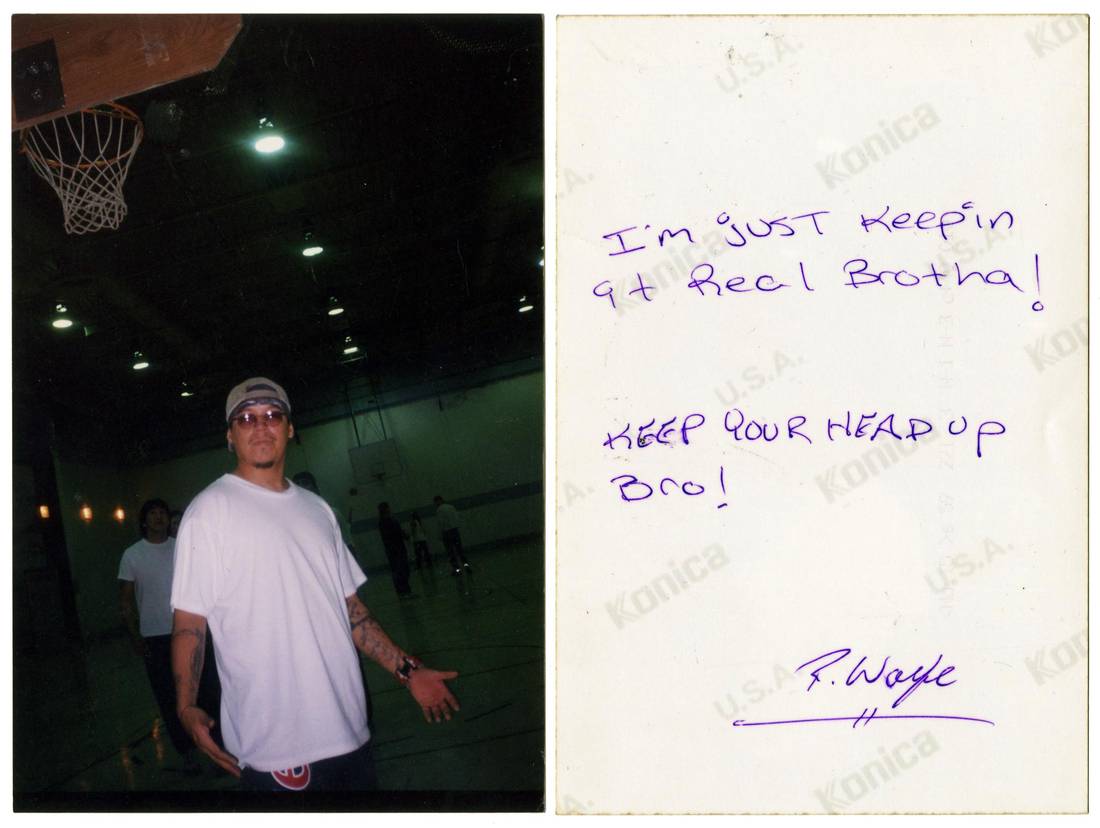 U.S.A.
Konica
I'm JUST Keep'in
it Real Brotha!
Konica
U.S.A.
U.S.A.
KEEP YOUR HEAD UP
Bro!
Konica
Konica
U.S.A.
R. Wolfe
U.S.A.
Konica